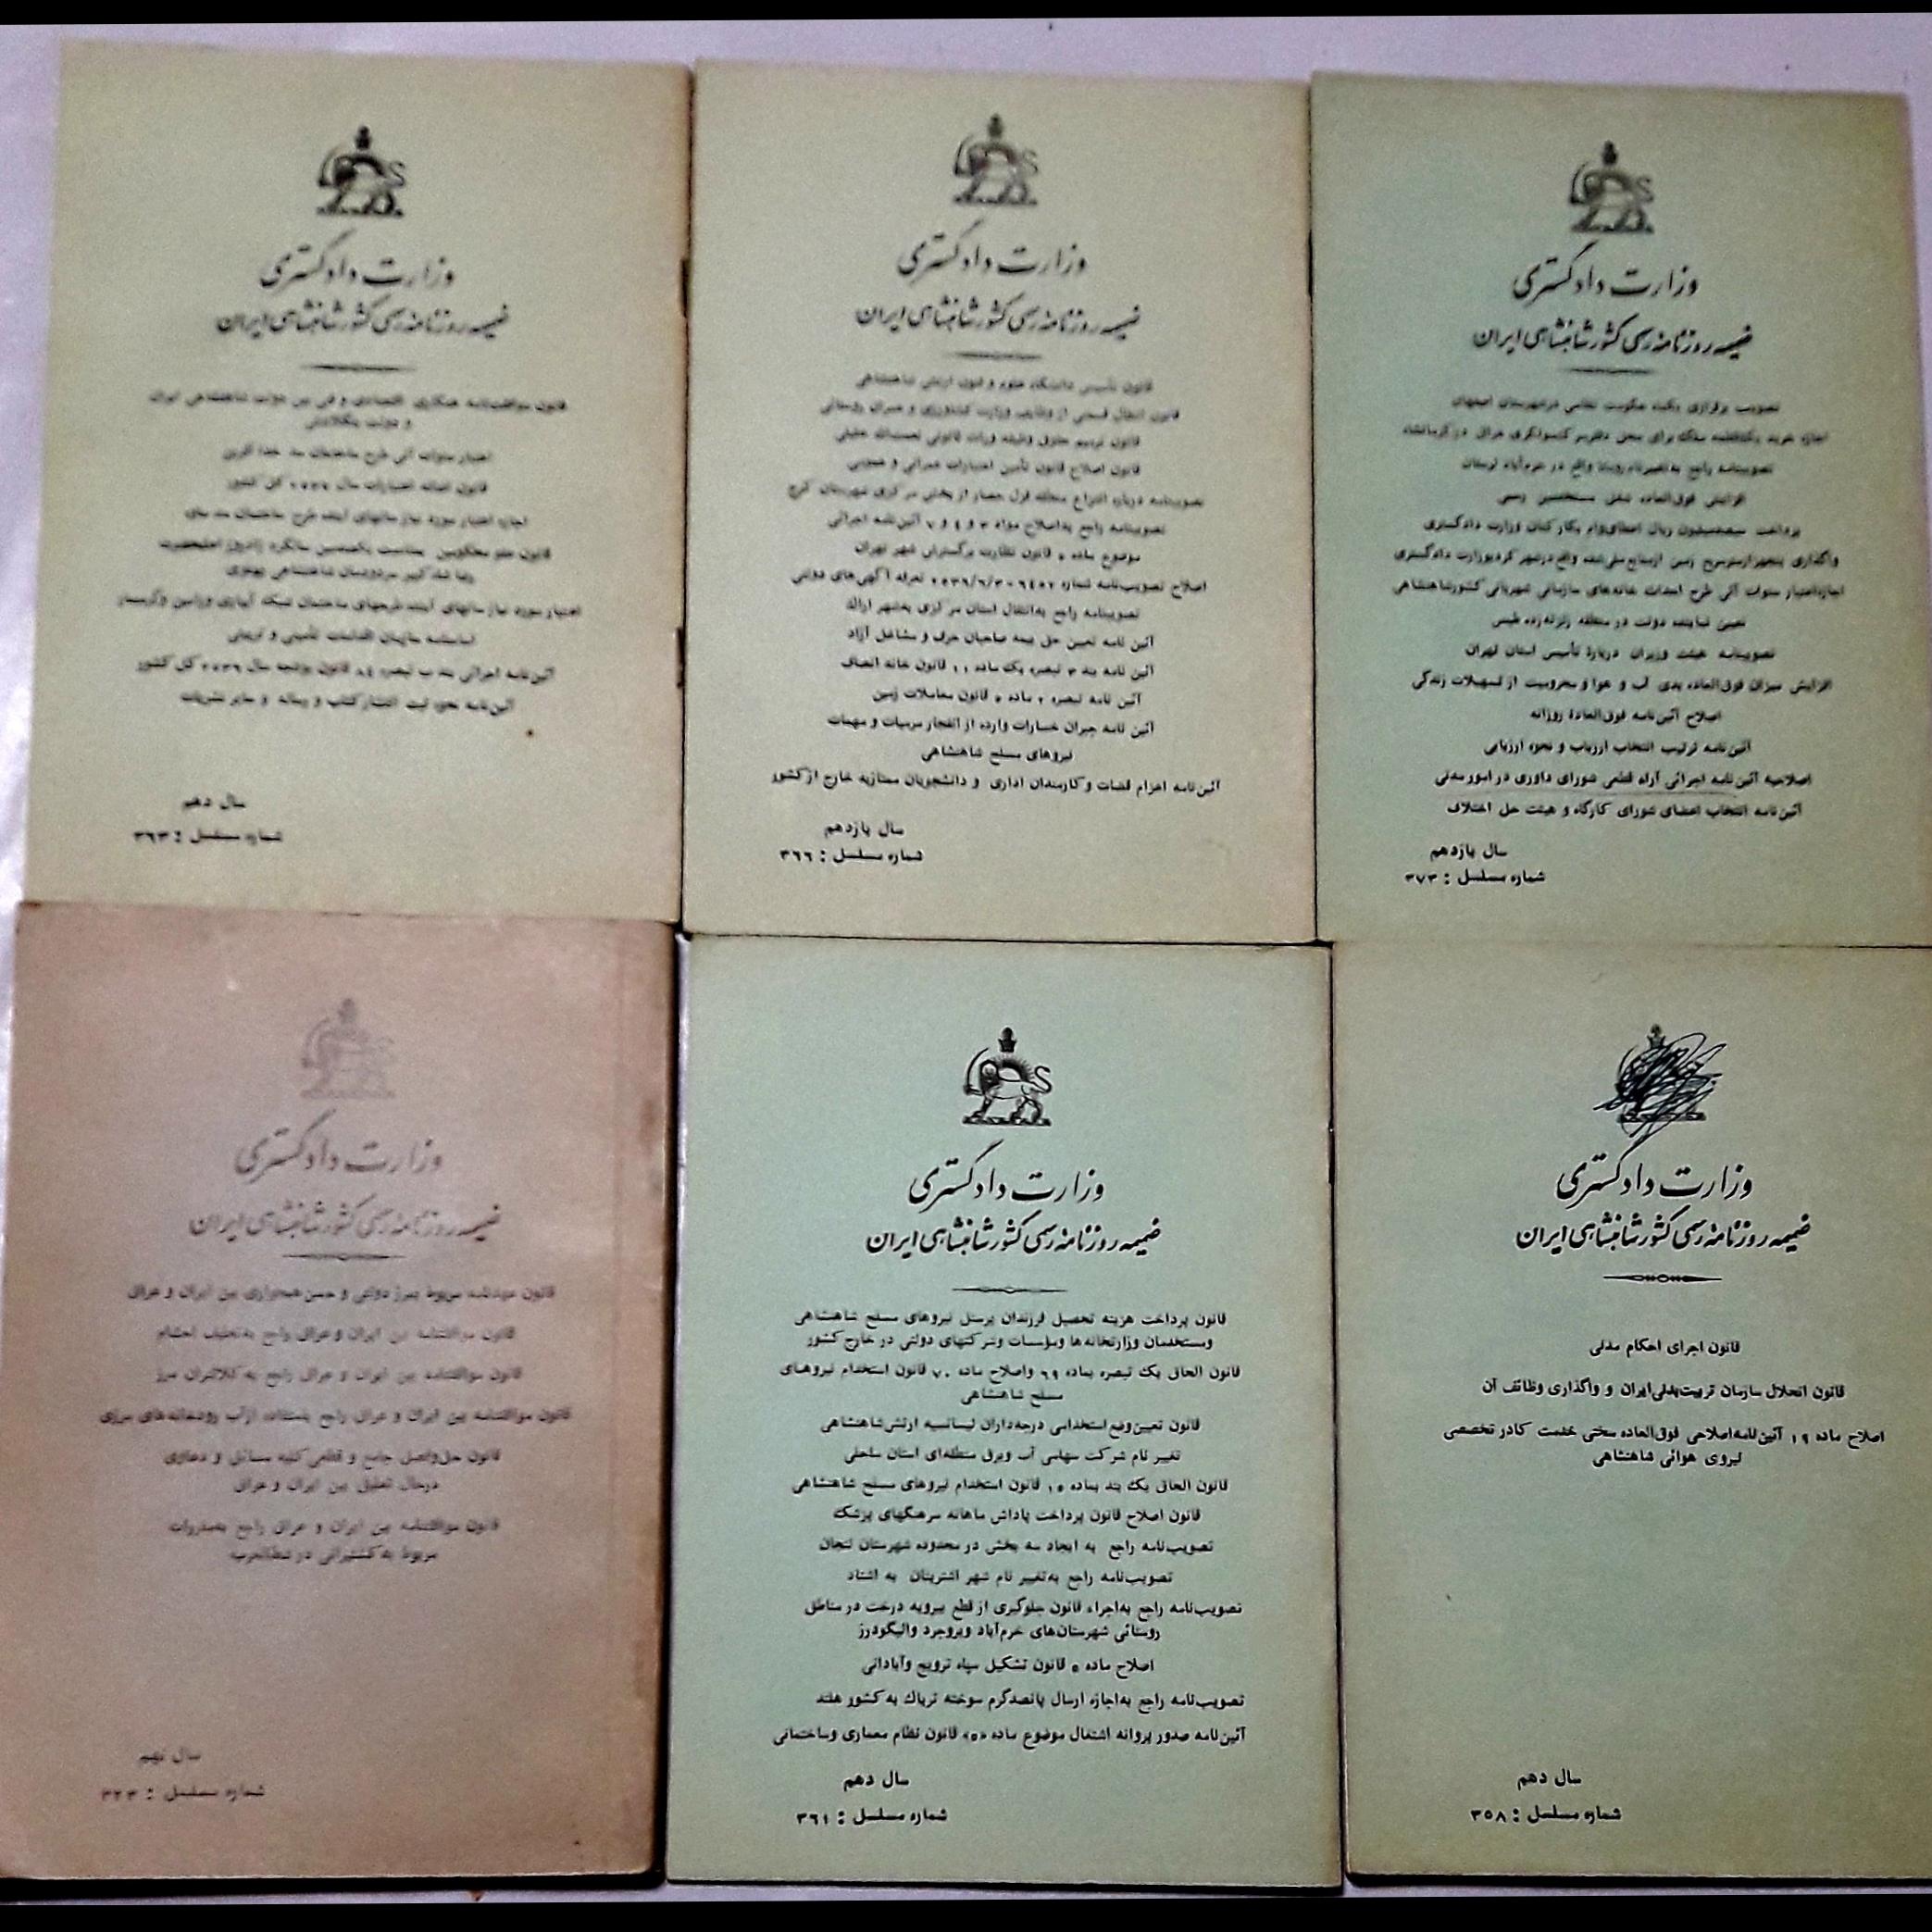 وزارت دادگستری
ضمیمه روزنامه رسمی کشور شاهنشاهی ایران
تصویب برقراری یکماه حکومت نظامی در شهرستان اصفهان
تصویبنامه راجع به تغییر نام روستا واقع در خرم‌آباد لرستان
افزایش فوق‌العاده شغل مستخدمین رسمی
پرداخت سیصدمیلیون ریال اعطای وام بکارکنان وزارت دادگستری
اجازه اعتبار سنوات آتی طرح احداث خانه‌های سازمانی شهربانی کشور شاهنشاهی
تعیین نماینده دولت در منطقه زلزله‌زده طبس
تصویبنامه هیئت وزیران دربارهٔ تأسیس استان تهران
افزایش میزان فوق‌العاده بدی آب و هوا و محرومیت از تسهیلات زندگی
اصلاح آئین‌نامه فوق‌العادهٔ روزانه
آئین‌نامه ترتیب انتخاب ارزیاب و نحوه ارزیابی
اصلاحیه آئین‌نامه اجرائی آراء قطعی شورای داوری در امور مدنی
آئین‌نامه انتخاب اعضای شورای کارگاه و هیئت حل اختلاف
سال یازدهم
شماره مسلسل : ۳۷۳
وزارت دادگستری
ضمیمه روزنامه رسمی کشور شاهنشاهی ایران
قانون تأسیس دانشگاه علوم و فنون ارتش شاهنشاهی
قانون انتقال قسمتی از وظایف وزارت کشاورزی و عمران روستائی
قانون ترمیم حقوق وظیفه وراث قانونی نعمت‌الله خلیلی
قانون اصلاح قانون تأمین اعتبارات عمرانی و عمومی
تصویبنامه درباره انتزاع منطقه قزل حصار از بخش مرکزی شهرستان کرج
تصویبنامه راجع به اصلاح مواد ۳ و ۴ و ۷ آئین‌نامه اجرائی
موضوع ماده ۵ قانون نظارت بر گسترش شهر تهران
اصلاح تصویب‌نامه شماره ۶۴۵۲-۲۵۳۶/۶/۳ تعرفه آگهی‌های دولتی
تصویبنامه راجع به انتقال استان مرکزی به شهر اراک
آئین نامه تعیین حق بیمه صاحبان حرف و مشاغل آزاد
آئین نامه بند ۳ تبصره یک ماده ۱۱ قانون خانه انصاف
آئین نامه تبصره ۲ ماده ۵ قانون معاملات زمین
آئین نامه جبران خسارات وارده از انفجار مرمیات و مهمات
نیروهای مسلح شاهنشاهی
آئین‌نامه اعزام قضات و کارمندان اداری و دانشجویان ممتازبه خارج از کشور
سال یازدهم
شماره مسلسل : ۳۶۶
وزارت دادگستری
ضمیمه روزنامه رسمی کشور شاهنشاهی ایران
قانون موافقت‌نامه همکاری اقتصادی و فنی بین دولت شاهنشاهی ایران
و دولت بنگلادش
اعتبار سنوات آتی طرح ساختمان سد خدا آفرین
اساسنامه سازمان اقدامات تأمینی و تربیتی
آئین‌نامه نحوه ثبت انتشار کتاب و رساله و سایر نشریات
سال دهم
شماره مسلسل : ۳۶۳
وزارت دادگستری
ضمیمه روزنامه رسمی کشور شاهنشاهی ایران
قانون اجرای احکام مدنی
قانون انحلال سازمان تربیت‌بدنی ایران و واگذاری وظائف آن
اصلاح ماده ۱۹ آئین‌نامه اصلاحی فوق‌العاده سختی خدمت کادر تخصصی
نیروی هوائی شاهنشاهی
سال دهم
شماره مسلسل : ۳۵۸
وزارت دادگستری
ضمیمه روزنامه رسمی کشور شاهنشاهی ایران
قانون پرداخت هزینه تحصیل فرزندان پرسنل نیروهای مسلح شاهنشاهی
و مستخدمان وزارتخانه‌ها و مؤسسات و شرکتهای دولتی در خارج کشور
قانون الحاق یک تبصره بماده ۶۹ و اصلاح ماده ۷۰ قانون استخدام نیروهای
مسلح شاهنشاهی
قانون تعیین وضع استخدامی درجه‌داران لیسانسیه ارتش شاهنشاهی
تغییر نام شرکت سهامی آب و برق منطقه‌ای استان ساحلی
قانون الحاق یک بند بماده ۱۵ قانون استخدام نیروهای مسلح شاهنشاهی
قانون اصلاح قانون پرداخت پاداش ماهانه سرهنگهای پزشک
تصویب‌نامه راجع به ایجاد سه بخش در محدوده شهرستان لنجان
تصویب‌نامه راجع به تغییر نام شهر اشترینان به اشتاد
تصویب‌نامه راجع به اجراء قانون جلوگیری از قطع بیرویه درخت در مناطق
روستائی شهرستان‌های خرم‌آباد و بروجرد و الیگودرز
اصلاح ماده ۵ قانون تشکیل سپاه ترویج و آبادانی
تصویب‌نامه راجع به اجازه ارسال پانصدگرم سوخته تریاک به کشور هلند
آئین‌نامه صدور پروانه اشتغال موضوع ماده «۵» قانون نظام معماری و ساختمانی
سال دهم
شماره مسلسل : ۳۶۱
وزارت دادگستری
ضمیمه روزنامه رسمی کشور شاهنشاهی ایران
قانون عهدنامه مربوط بمرز دولتی و حسن همجواری بین ایران و عراق
قانون موافقتنامه بین ایران و عراق راجع به تعلیف احشام
قانون موافقتنامه بین ایران و عراق راجع به کلانتران مرز
قانون موافقتنامه بین ایران و عراق راجع باستفاده از آب رودخانه‌های مرزی
قانون حل و فصل جامع و قطعی کلیه مسائل و دعاوی
درحال تعلیق بین ایران و عراق
قانون موافقتنامه بین ایران و عراق راجع بمقررات
مربوط به کشتیرانی در شط‌العرب
سال نهم
شماره مسلسل : ۳۲۳